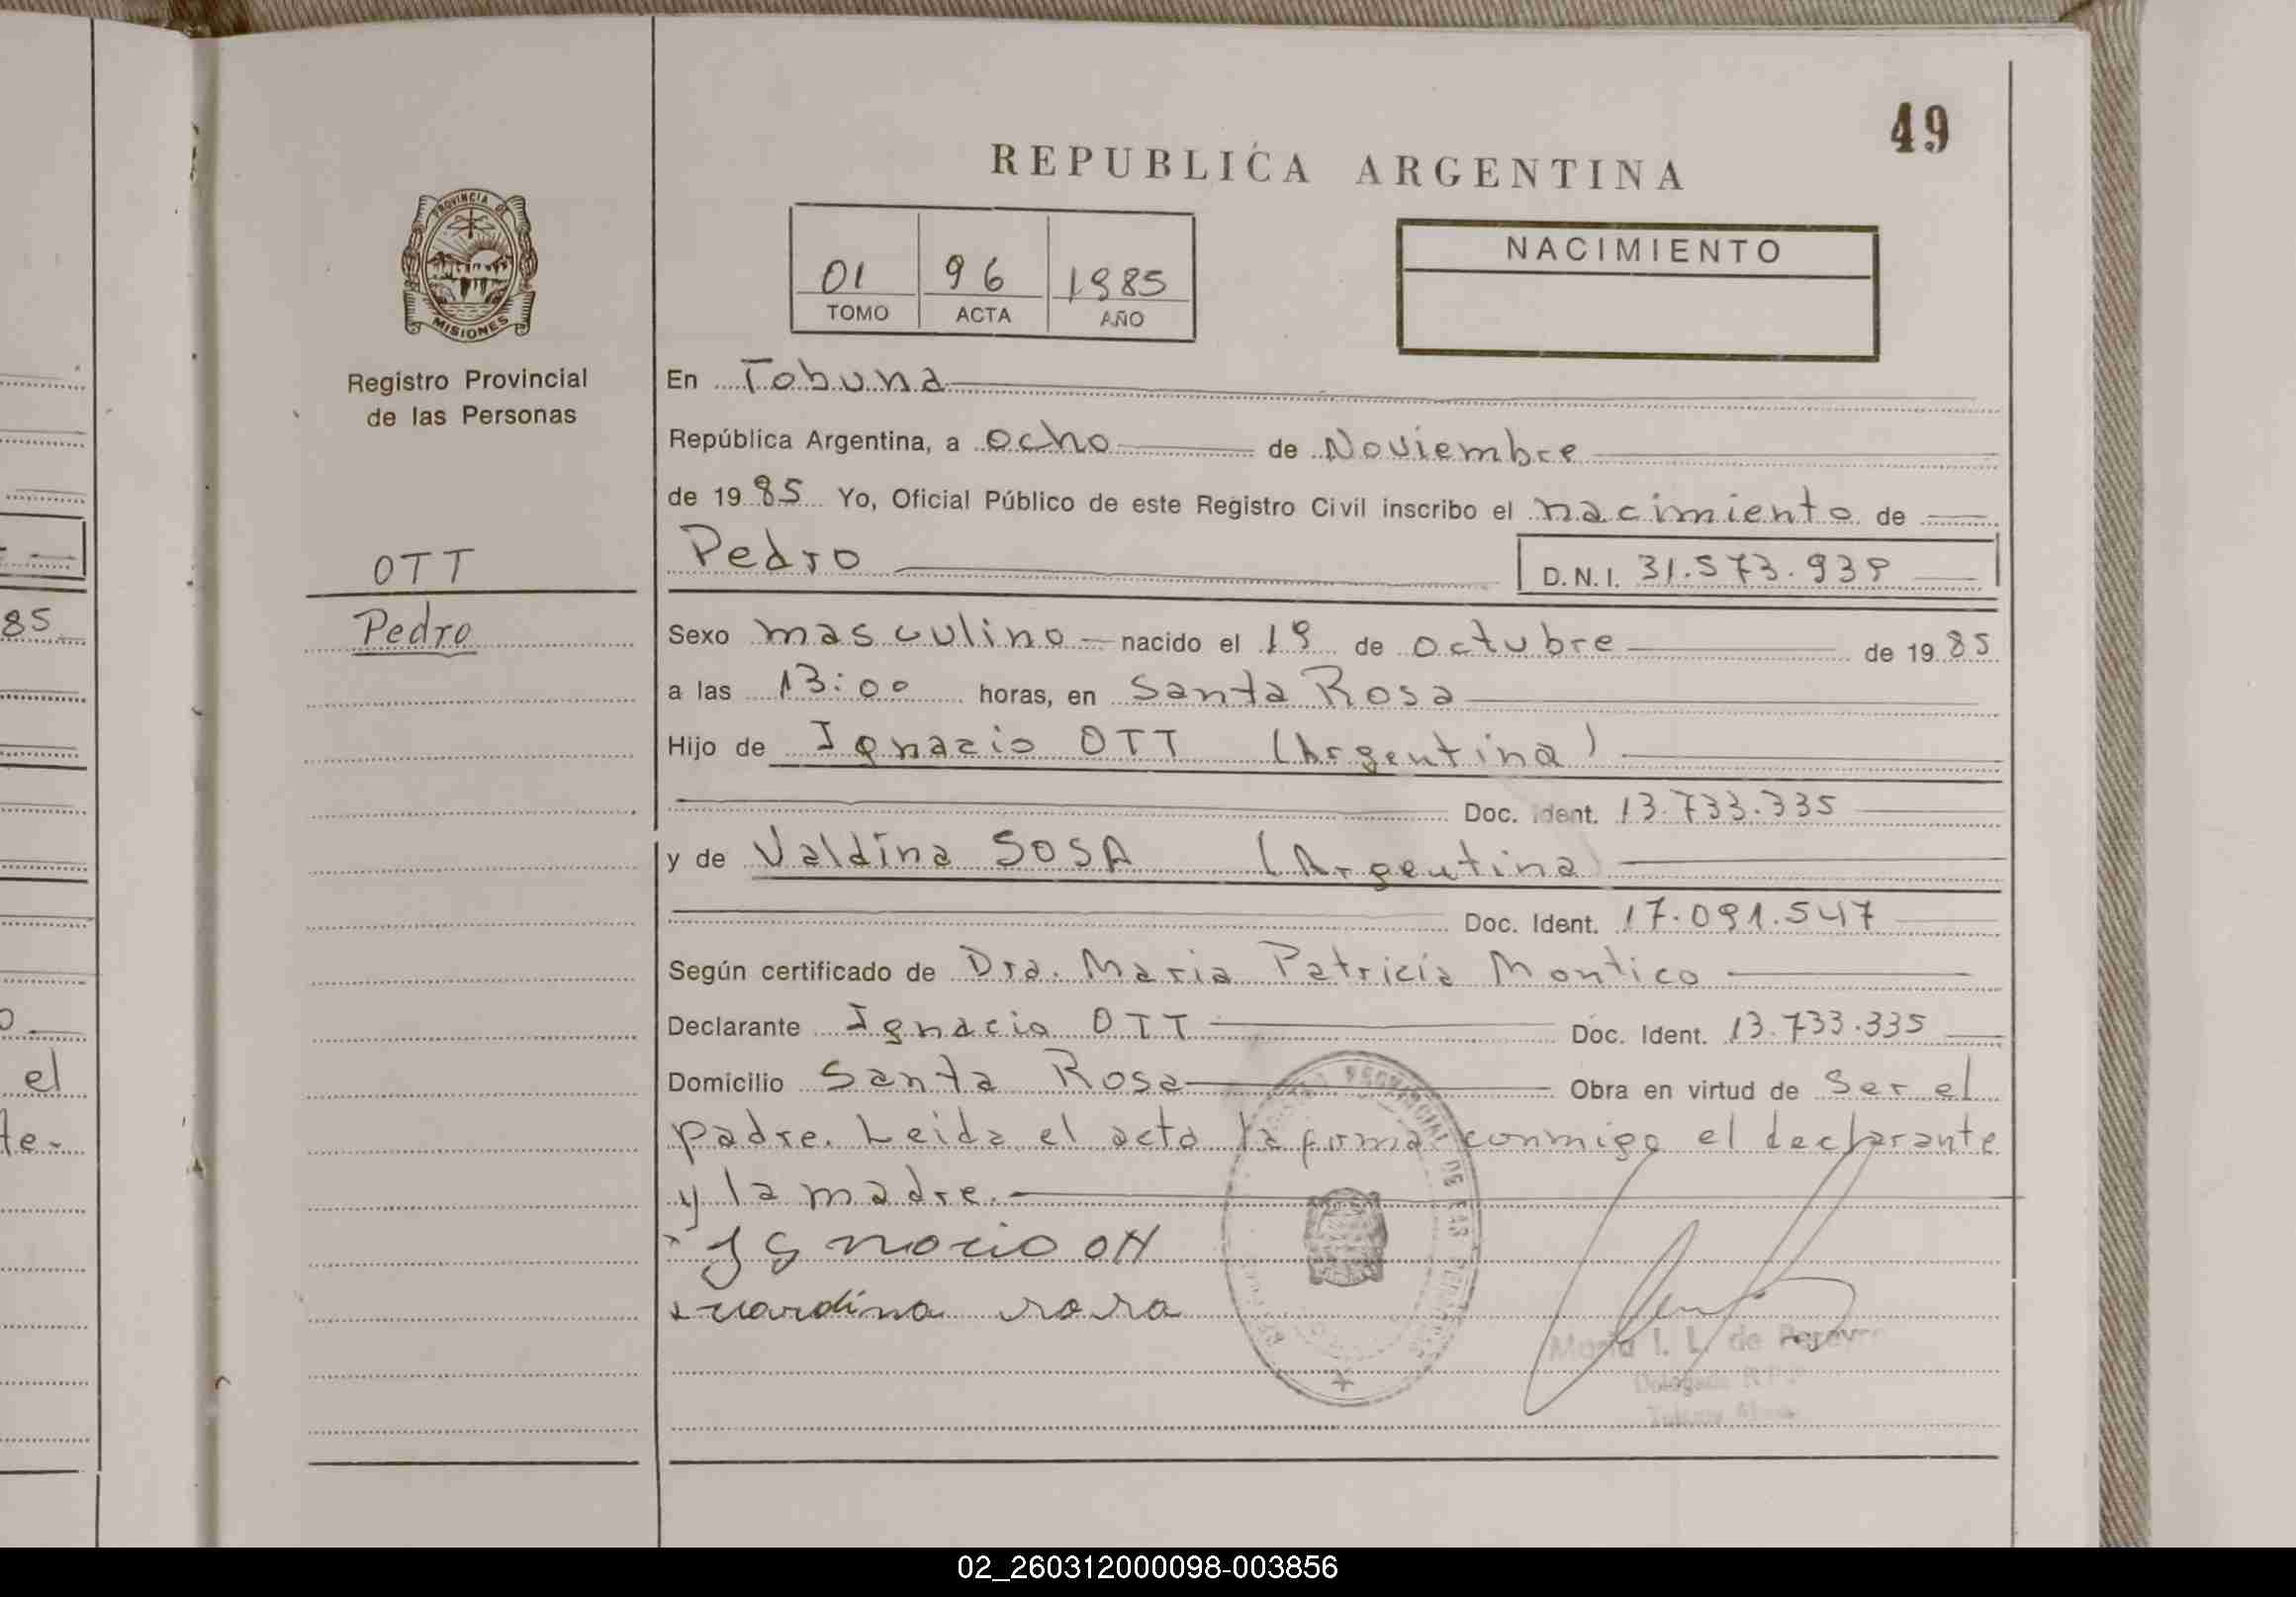 49
REPUBLICA ARGENTINA
PROVINCIA DE
MISIONES
Registro Provincial
de las Personas
01 96 1985
TOMO ACTA AÑO
NACIMIENTO
En Tobuna
República Argentina, a ocho de Noviembre
de 1985 Yo, Oficial Público de este Registro Civil inscribo el nacimiento de
OTT
Pedro
Pedro D.N.I. 31.573.939
Sexo masculino nacido el 19 de octubre de 1985
a las 13:00 horas, en Santa Rosa
Hijo de Ignacio OTT (Argentina)
Doc. Ident. 13.733.335
y de Valdina SOSA (Argentina)
Doc. Ident. 17.091.547
Según certificado de Dra. Maria Patricia Montico
Declarante Ignacio OTT Doc. Ident. 13.733.335
Domicilio Santa Rosa Obra en virtud de Ser el
padre. Leida el acta la firma conmigo el declarante
y la madre.
x Ignacio ott
x valdina sosa
PROVINCIAL DE LAS
Maria I. L. de Pereyra
85
el
te-
02_260312000098-003856